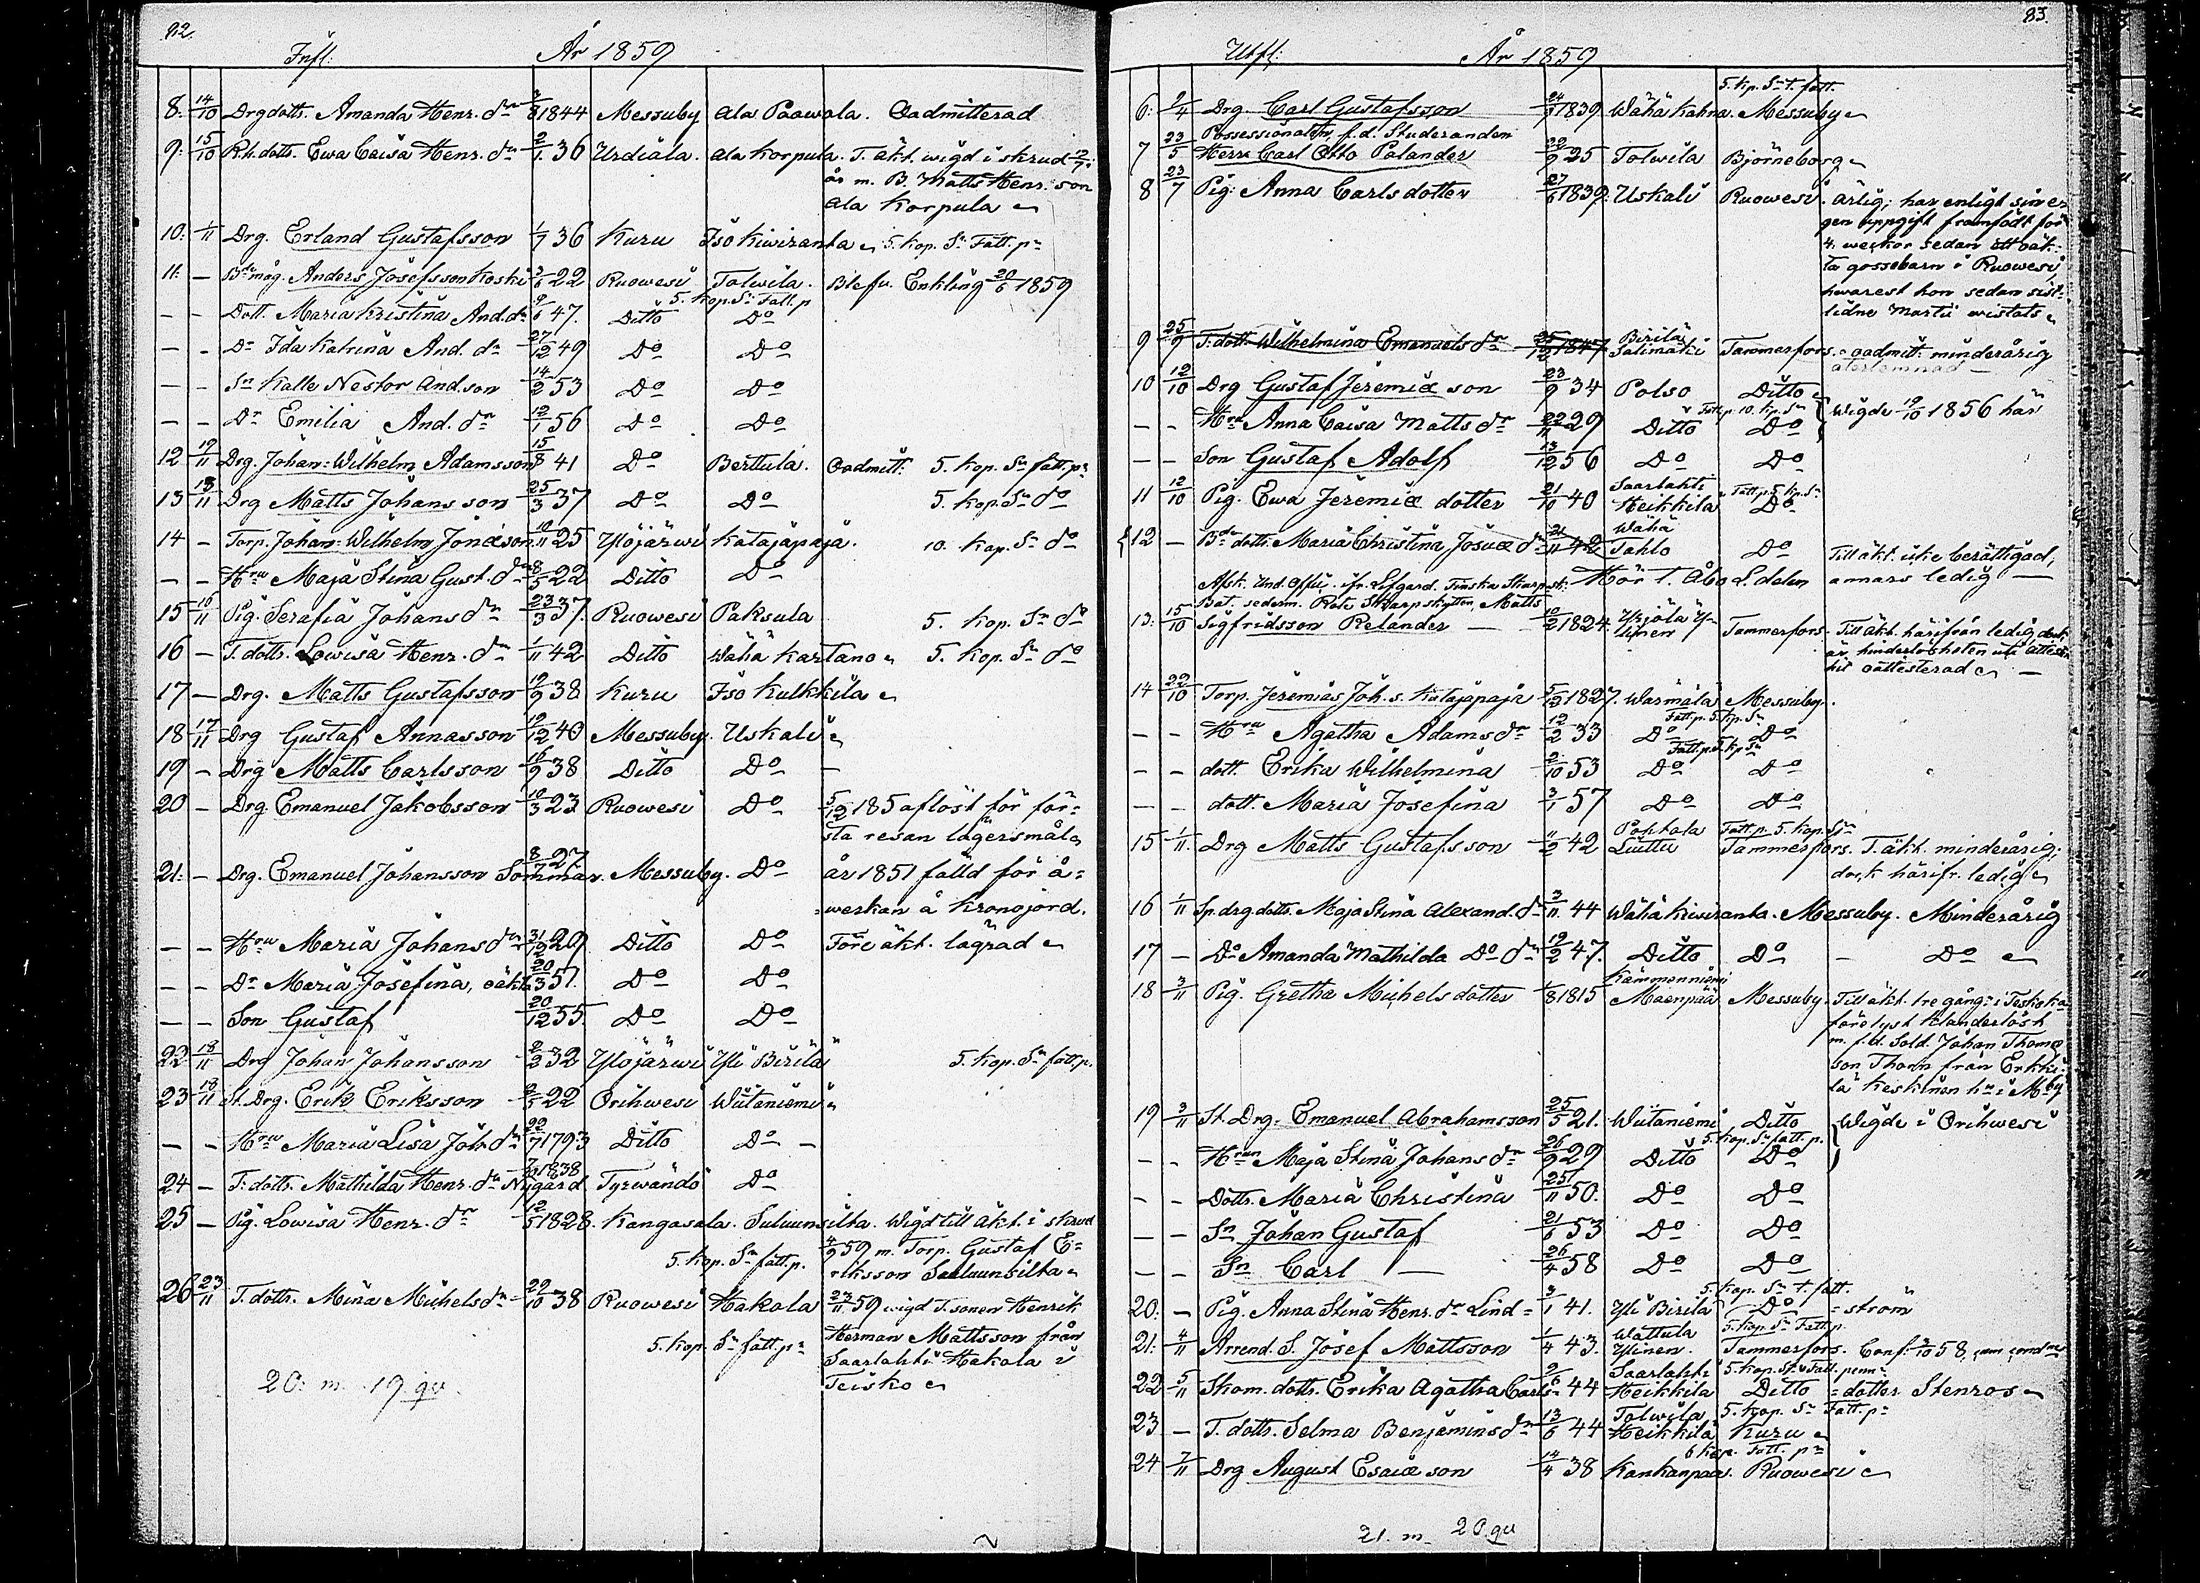 82.
Infl: År 1859
8: 14/10 Drgdottr. Amanda Henr. dr 1844 Messuby Ala Paawola. Oadmitterad
9: 15/10 R.h. dottr. Ewa Caisa Henr. dr 2/1 36 Urdiala. Ala Korpula. T. äkt. wigd i skrud
år m. B. Matts Henr. son
Ala Korpula
10: 1/11 Drg. Erland Gustafsson 1/7 36 Kuru Iso Kiwiranta 5. Kop. Sr Fatt. pr
11: — Bde måg. Anders Josefsson Koski 22 Ruowesi Tolwila. Blefv. Enkling 20/6 1859
5. Kop. Sr Fatt. p
— — Dott. Maria Kristina And. dr 47. Ditto Do
— — Dr Ida Katrina And. dr 27/12 49 Do Do
— — Sn Kalle Nestor And.son 14/2 53 Do Do
— — Dr Emilia And. dr 12/1 56 Do Do
12 19/11 Drg. Johan Wilhelm Adamsson 15/8 41 Do Berttula. Oadmitt: 5. Kop. Sr fatt. pr
13 13/11 Drg Matts Johansson 25/3 37 Do Do 5. Kop. Sr do
14 — Torp. Johan Wilhelm Jonæson 10/11 25 Ylöjärwi Katajapaja. 10. Kop. Sr do
— — Hru Maja Stina Gust. dr 8/5 22 Ditto Do
15 16/11 Pig. Serafia Johans dr 23/3 37. Ruowesi Paksula 5. Kop. Sr do
16 — T. dottr. Lowisa Henr. dr 1/11 42 Ditto Wähä Kartano 5. Kop. Sr do
17 — Drg. Matts Gustafsson 12/9 38 Kuru Iso Kulkkila
18 17/11 Drg Gustaf Annasson 12/12 40 Messuby. Uskali
19 — Drg Matts Carlsson 16/9 38 Ditto Do —
20 — Drg Emanuel Jakobsson 10/3 23 Ruowesi Do 5/12 185 aflöst för för=
sta resan lägersmål
21: — Drg. Emanuel Johansson Sommar. 8/7 27 Messuby. Do år 1851 fälld för å=
=werkan å Kronojord.
— — Hru Maria Johans dr 31/12 29 Ditto Do Före äkt. lägrad
— — Dr Maria Josefina, oäkta 20/3 51. Do Do
— — Son Gustaf 20/12 55 Do Do
22 18/11 Drg Johan Johansson 2/2 32 Ylöjärwi Yli Birilä 5. Kop. Sr fatt. p.
23 18/11 St. Drg. Erik Eriksson 22 Orihwesi Wiitaniemi
— — Hru Maria Lisa Joh. dr 22/7 1793 Ditto Do —
24 — T. dottr. Mathilda Henr. dr Nygård 1838 Tyrwändö Do
25 — Pig. Lowisa Henr. dr 12/5 1828. Kangasala. Suluunsilta. Wigd till äkt. i skrud
5. Kop. Sr fatt. p. 4/9 59 m. Torp. Gustaf E=
riksson Suluunsilta
26 23/11 T. dottr. Mina Michels dr 22/10 38 Ruowesi Hakala 23/11 59 wigd T.sonen Henrik
5. Kop. Sr fatt. pr Herman Mattsson från
Saarlahti Hakala i
Teisko
20: m. 19 qv.
83.
Utfl: År 1859
5. Kp. Sr t. fatt.
6: 2/4 Drg. Carl Gustafsson 1839 Wähä Kahra. Messuby
Possessionaten, f.d. Studeranden
7 23/5 Herr Carl Otto Polander 22/9 25 Tolwila Björneborg
8 23/7 Pig. Anna Carlsdotter 27/6 1839. Uskali Ruowesi. ärlig; har enligt sin e=
gen uppgift framfödt för
4. weckor sedan ett oäk=
ta gossebarn i Ruowesi,
hwarest hon sedan sist=
lidne Martii wistats
9 25/9 T. dottr. Wilhelmina Emanuels dr 25/12 1847. Birilä Salimäki Tammerfors. oadmitt: minderårig
återlemnad —
10 12/10 Drg Gustaf Jeremiæ son 23/9 34 Polso Ditto
Fatt. p. 10. Kp. Sr
— — Hru Anna Caisa Matts dr 22/11 29 Ditto Do Wigde 19/10 1856 här
— — Son Gustaf Adolf 13/12 56 Do Do
11 12/10 Pig. Ewa Jeremiæ dotter 21/10 40 Saarlahti Heikkilä Do
Fatt. p. 5 Kp. Sr
12 — Bde dottr. Maria Christina Josuæ dr 21/11 42 Wähä Tahlo Do Till äkt. icke berättigad,
annars ledig —
Afsk. Und. Offic. ifr. Lifgard. Finska Skarpsk: Hör t. Åbo L. dalen
Bat. sederm. Rote Skarpskytten, Matts
13: 15/10 Sigfridsson Relander — 10/2 1824. Ylinen Tammerfors. Till äkt. härifrån ledig, dock
är hinderlösheten ute attesten
hit oattesterad —
14 22/10 Torp. Jeremias Joh. s. Katajapaja 1827. Warmala Messuby.
Fatt. p. 5. Kp. Sr
— — Hru Agatha Adams dr 12/2 33 Do Do
Fatt. p. 5. Kp Sr
— — dott. Erika Wilhelmina 2/10 53 Do Do
— — dott. Maria Josefina 3/1 57 Do Do
15 1/11. Drg Matts Gustafsson 11/2 42 Pohtola Liuttu Tammerfors. T. äkt. minderårig;
Fatt. p. 5. Kop. Sr
dock härifr. ledig
16 1/11 Sp. drg dottr. Maja Stina Alexand. dr 3/11 44 Wähä Kiwiranta. Messuby. Minderårig
17 — Do Amanda Mathilda Do dr 19/2 47. Ditto Do — Do
18 3/11 Pig. Gretha Michels dotter 1/8 1815 Kämmenniemi Maenpää Messuby. Till äkt. tre gång: i Teisko ka
förelyst klanderlöst
m. f.d. Sold. Johan Thomæ
son Thorn från Erkki=
lä Keskinen hn i Mby
19 3/11 St. Drg. Emanuel Abrahamsson 25/5 21. Wiitaniemi Ditto Wigde i Orihwesi
5. Kop. Sr fatt. p.
— — Hrun Maja Stina Johans dr 26/9 29 Ditto Do
— — Dottr. Maria Christina 25/11 50. Do Do
— — Sn Johan Gustaf 21/6 53 Do Do
— — Sn Carl — 26/4 58 Do Do
5. Kop. Sr t. fatt.
20: — Pig. Anna Stina Henr. dr Lind= 3/1 41. Yli Birilä Do =ström
5. Kop. Sr Fatt. p.
21: 4/11 Arrend. S. Josef Mattsson 1/4 43. Wattula Ylinen. Tammerfors. Conf: 58,
5. Kop. Sr Fatt. penn:
22 5/11 Skom. dottr. Erika Agatha Carls= 2/6 44 Saarlahti Heikkila Ditto =dotter Stenros
5. Kop. Sr Fatt. pr
23 — T. dottr. Selma Benjamins dr 13/6 44 Tolwila Heikkilä Kuru
6 Kop. Fatt. pr
24 7/11 Drg August Esaiæ son 14/4 38 Kankanpää. Ruowesi
21. m 20. qv